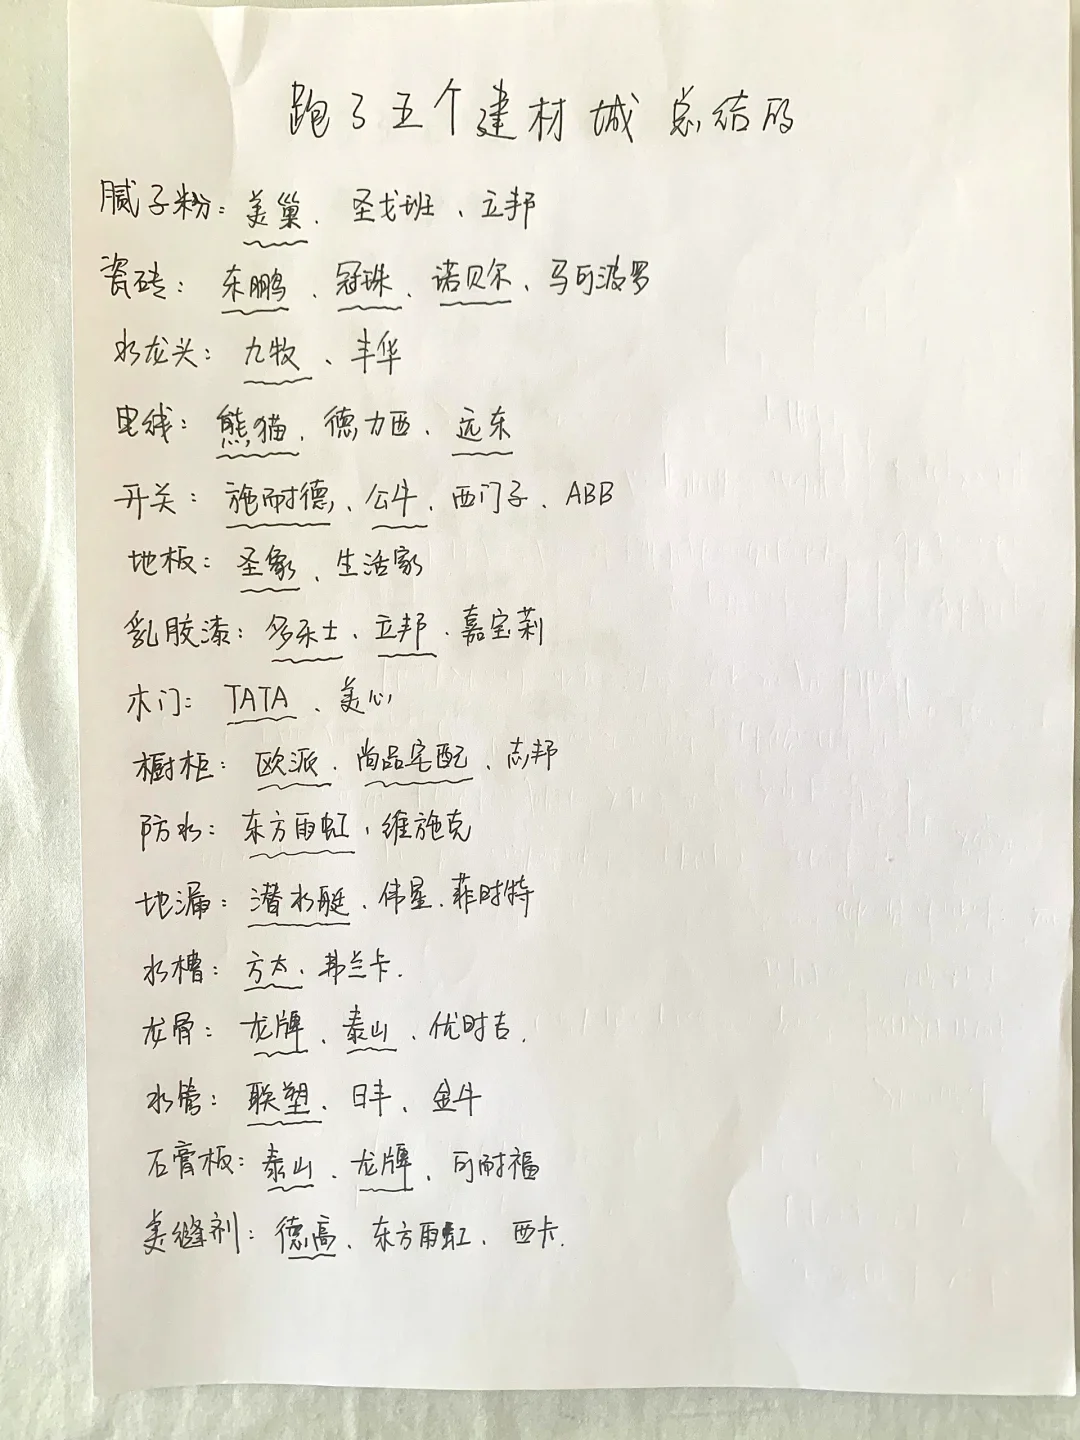 跑了五个建材城 总结的
腻子粉：美巢、圣戈班、立邦
瓷砖：东鹏、冠珠、诺贝尔、马可波罗
水龙头：九牧、丰华
电线：熊猫、德力西、远东
开关：施耐德、公牛、西门子、ABB
地板：圣象、生活家
乳胶漆：多乐士、立邦、嘉宝莉
木门：TATA、美心
橱柜：欧派、尚品宅配、志邦
防水：东方雨虹、维施克
地漏：潜水艇、伟星、菲时特
水槽：方太、弗兰卡.
龙骨：龙牌、泰山、优时吉.
水管：联塑、日丰、金牛
石膏板：泰山、龙牌、可耐福
美缝剂：德高、东方雨虹、西卡.